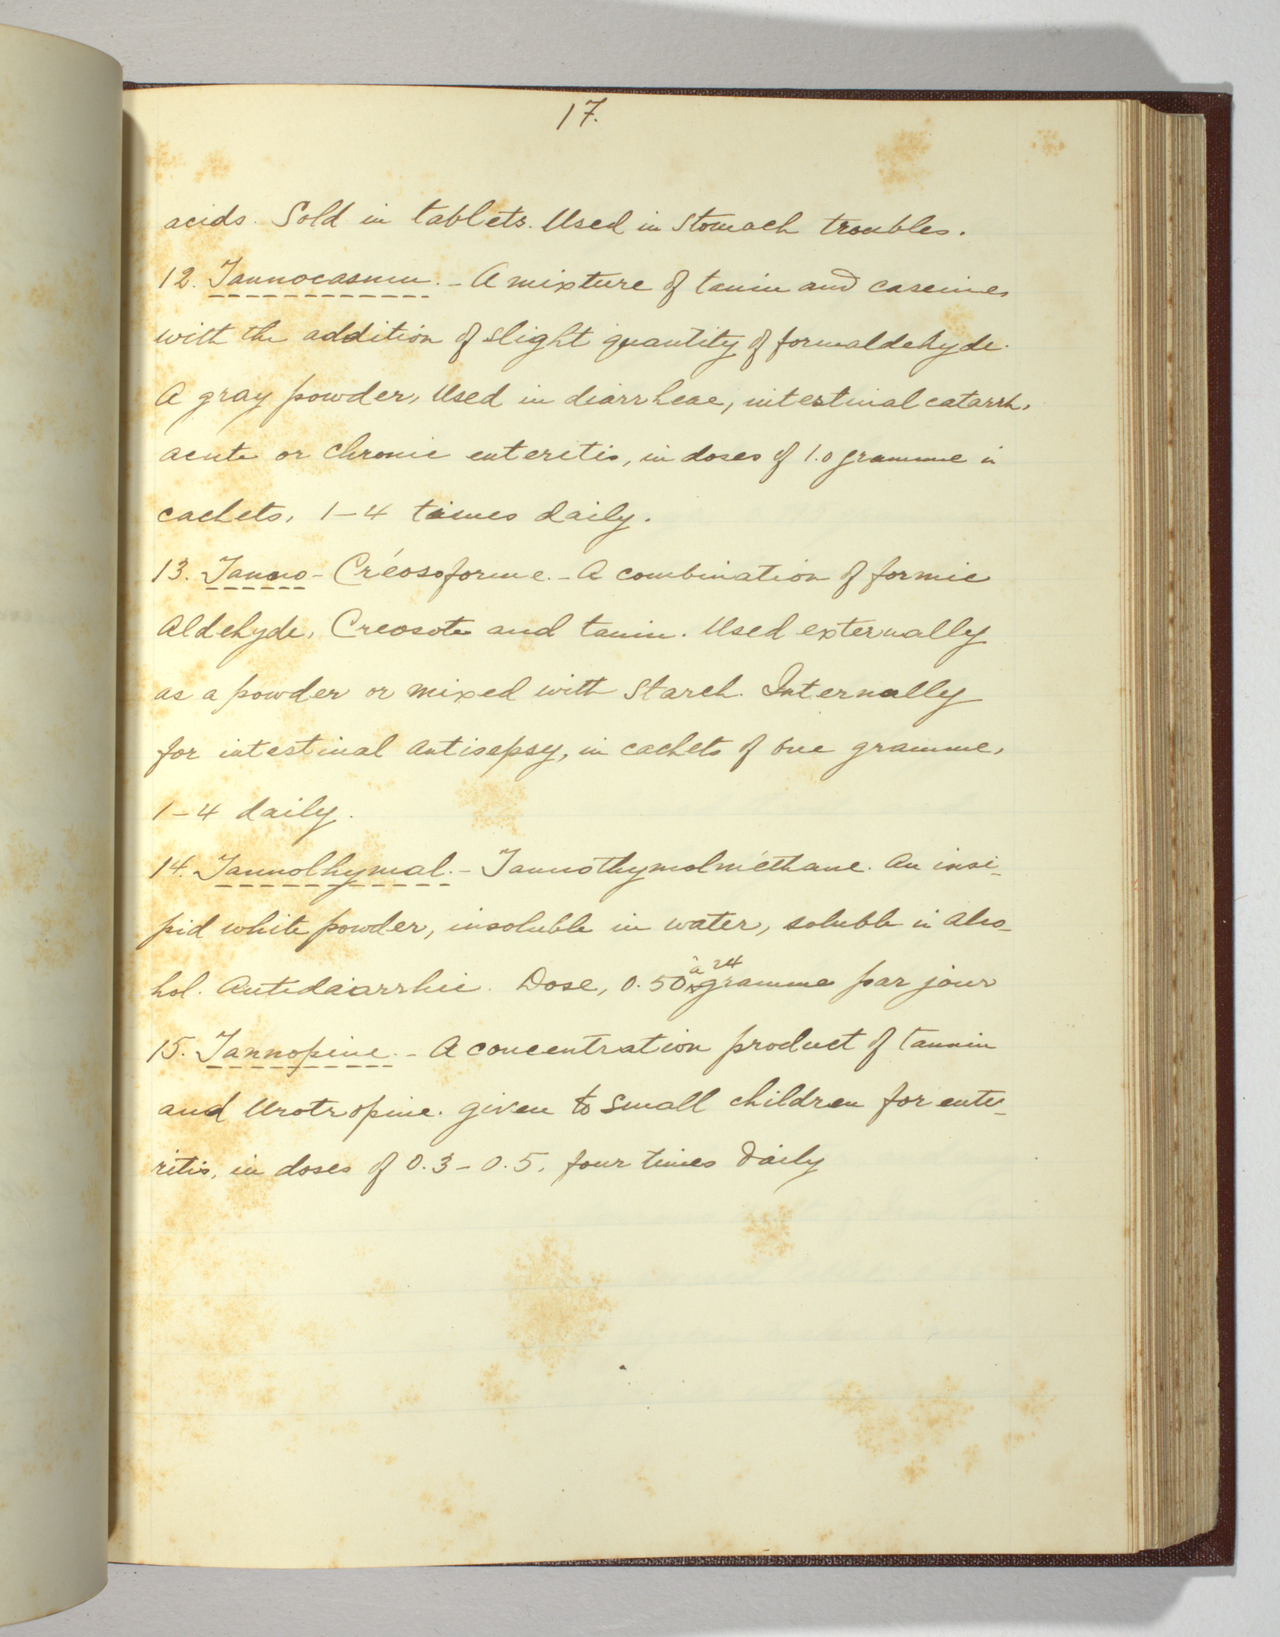 17.
acids. Sold in tablets. Used in Stomach troubles.
12. Tannocasum. - A mixture of tanin and caseines
with the addition of slight quantity of formaldehyde.
A gray powder, Used in diarrheae, intestinal catarrh,
acute or chronic enteritis, in doses of 1.0 gramme in
cachets, 1-4 times daily.
13. Tanno-Créosoforme. - A combination of formic
Aldehyde, Creosote and tanin. Used externally
as a powder or mixed with Starch. Internally
for intestinal antisepsy, in cachets of one gramme,
1-4 daily.
14. Tannothymal. - Tannothymolméthane. An insi-
pid white powder, insoluble in water, soluble in alco-
hol. Antidaiarrhic. Dose, 0.50 à 24 gramme par jour
15. Tannopine. - A concentration product of tannin
and Urotropine. given to small children for ente-
ritis, in doses of 0.3-0.5, four times daily